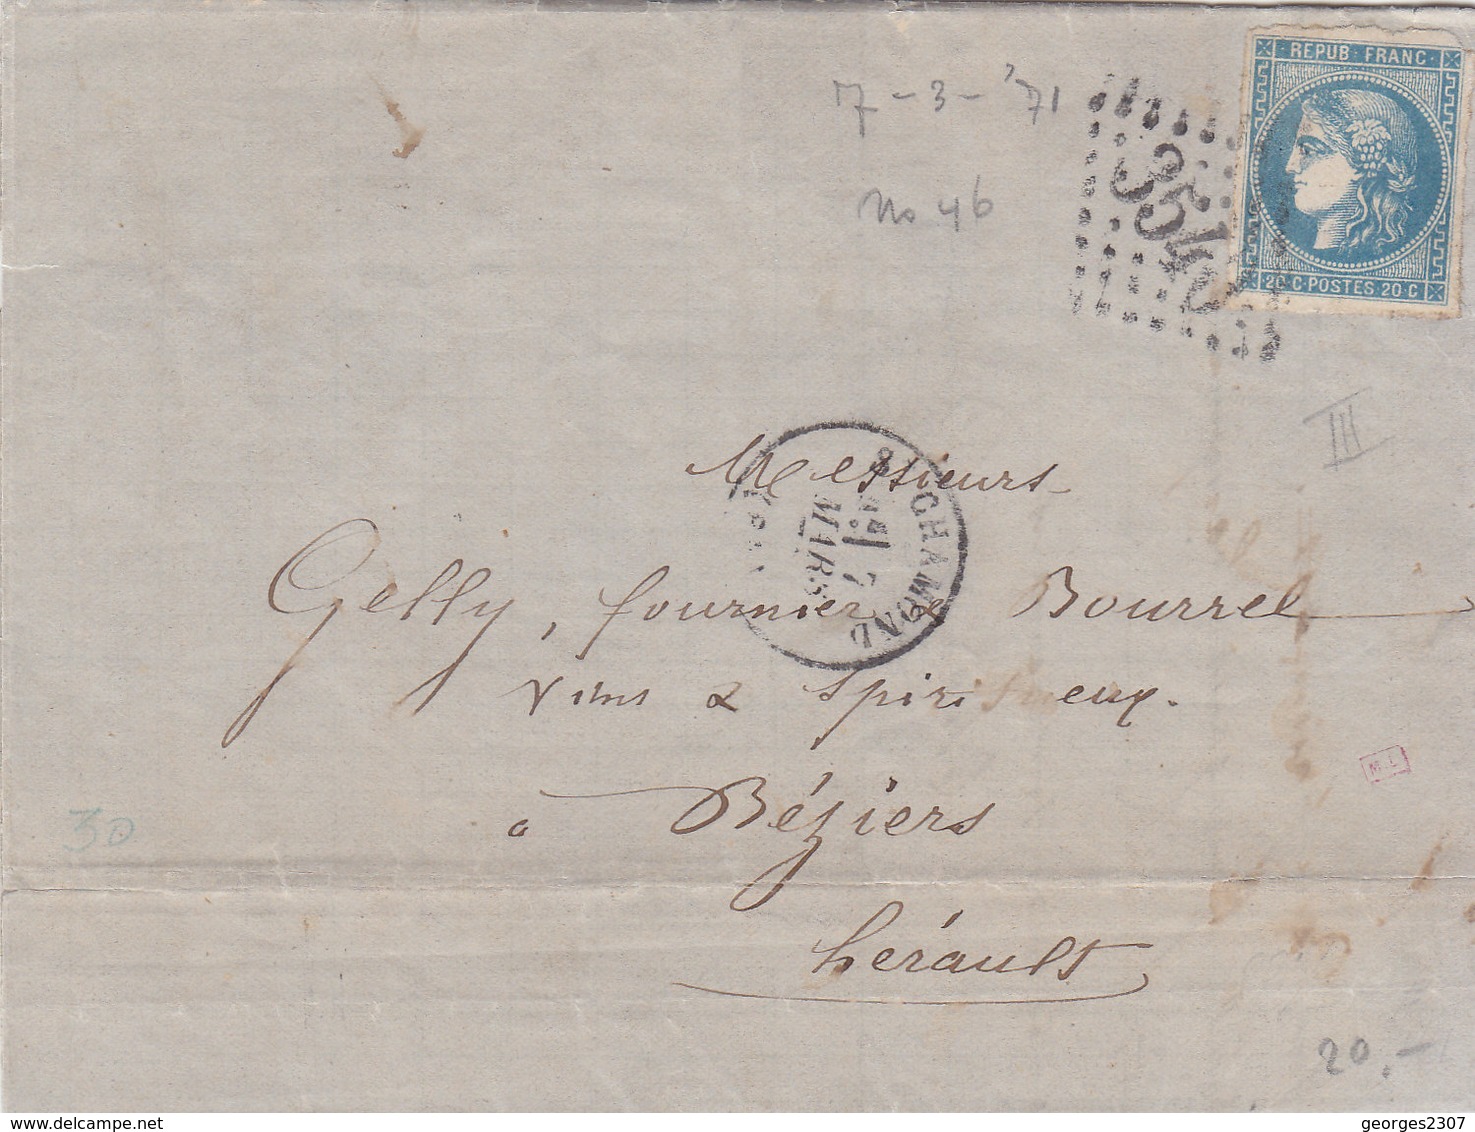 REPUB · FRANC ·
20 C · POSTES · 20 C
3540
7 - 3 - '71
No 46
III
ST CHAMOND
7
MARS
Messieurs
Gelly, fournier & Bourrel
Vins & Spiritueux.
a Béziers
hérault
M.L
30
20,-
georges2307